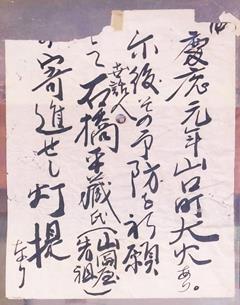 慶応元年山口町大火あり。
尓後その予防を祈願
して石橋平藏氏(山岡屋先祖)
世話人
の寄進せし灯提
なり